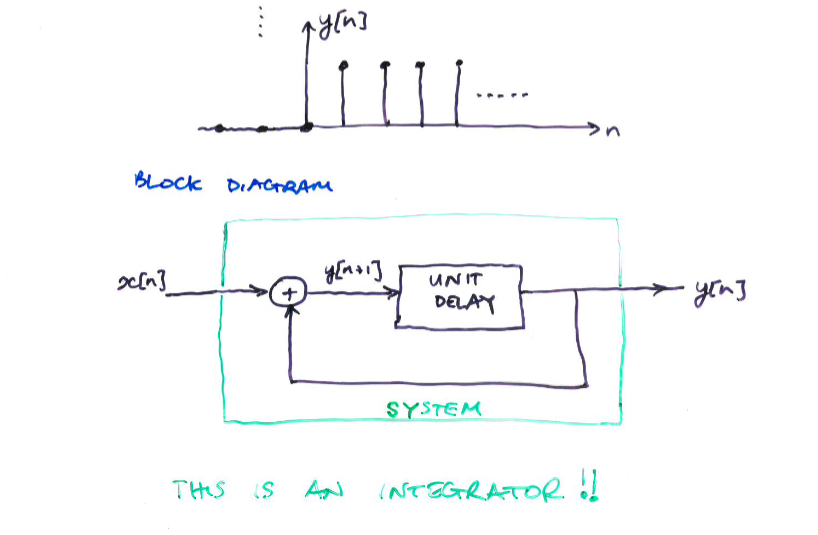 y[n]
n
BLOCK DIAGRAM
x[n]
+
y[n+1]
UNIT
DELAY
y[n]
SYSTEM
THIS IS AN INTEGRATOR!!